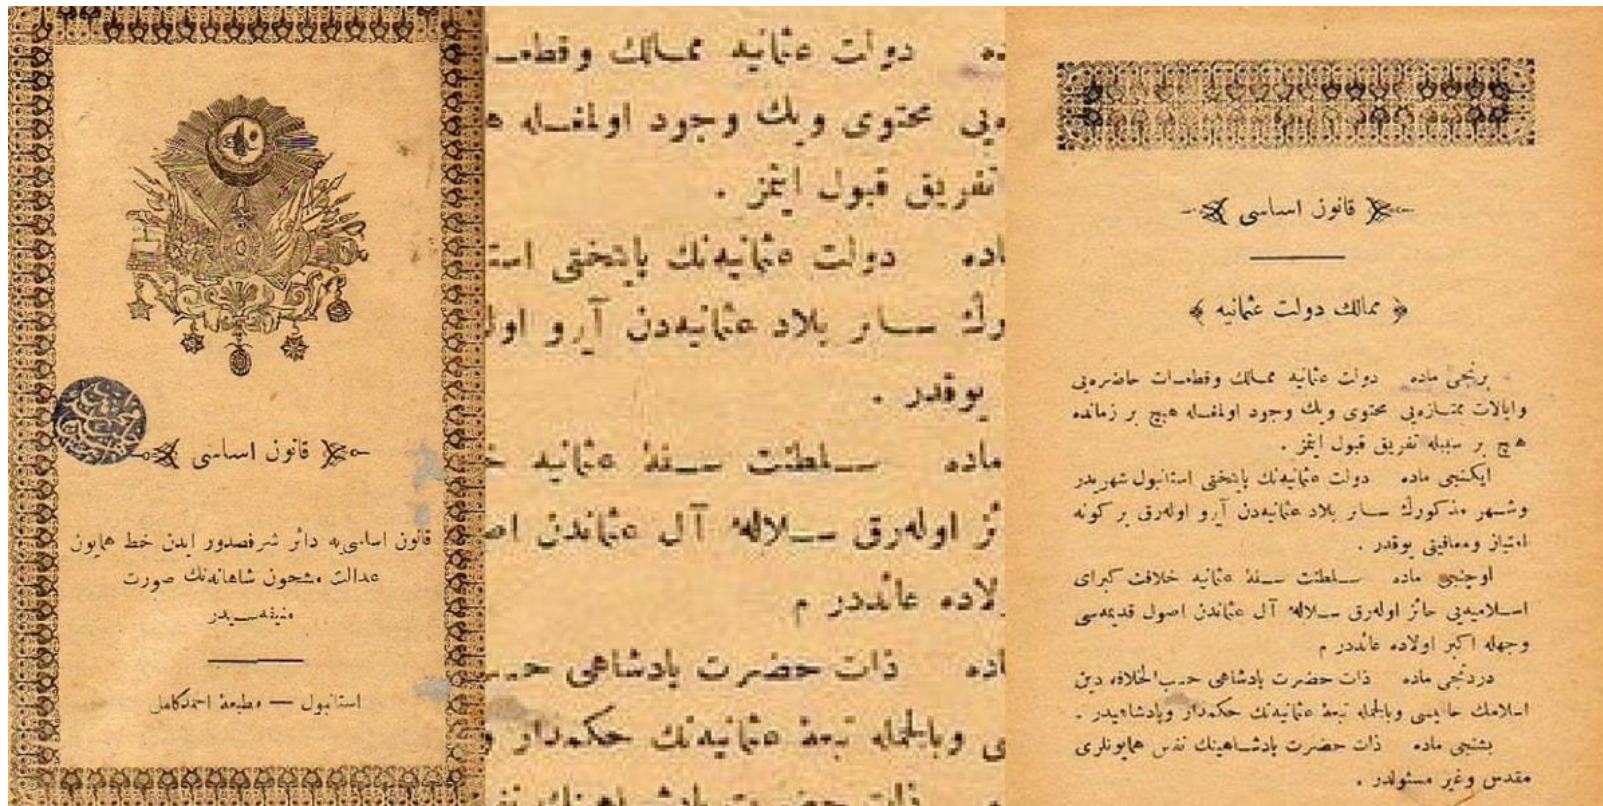 قانون اساسی
قانون اساسی‌یه دائر شرفصدور ایدن خط همایون
عدالت مشحون شاهانه‌نك صورت
منیفه‌سیدر
استانبول — مطبعهٔ احمد کامل
دولت عثمانیه ممالك وقطعـ
محتوی ویك وجود اولمغـله
تفریق قبول ایتمز .
دولت عثمانیه‌نك پایتختی استا
سـائر بلاد عثمانیه‌دن آیرو اولـ
یوقدر .
ماده سـلطنت سـنیهٔ عثمانیه
ئز اوله‌رق سـلالهٔ آل عثماندن اصـ
ولاده عائددر م
ذات حضرت پادشاهی حسـ
وبالجمله تبعهٔ عثمانیه‌نك حکمدار و
ذات حضرت پادشـاهینك نفـ
قانون اساسی
ممالك دولت عثمانیه
برنجی ماده دولت عثمانیه ممالك وقطعـات حاضره‌یی
وایالات ممتـازه‌یی محتوی ویك وجود اولمغـله هیچ بر زمانده
هیچ بر سببله تفریق قبول ایتمز .
ایکنجی ماده دولت عثمانیه‌نك پایتختی استانبول شهریدر
وشـهر مذکورك سـائر بلاد عثمانیه‌دن آیرو اوله‌رق بر کونه
امتیاز ومعافیتی یوقدر .
اوچنجی ماده سـلطنت سـنیهٔ عثمانیه خلافت کبرای
اسـلامیه‌یی حائز اوله‌رق سـلالهٔ آل عثماندن اصول قدیمه‌سی
وجهله اکبر اولاده عائددر م
دردنجی ماده ذات حضرت پادشاهی حسب‌الخلافه دین
اسلامك حامیسی وبالجمله تبعهٔ عثمانیه‌نك حکمدار وپادشاهیدر .
بشنجی ماده ذات حضرت پادشـاهینك نفس همایونلری
مقدس وغیر مسئولدر .